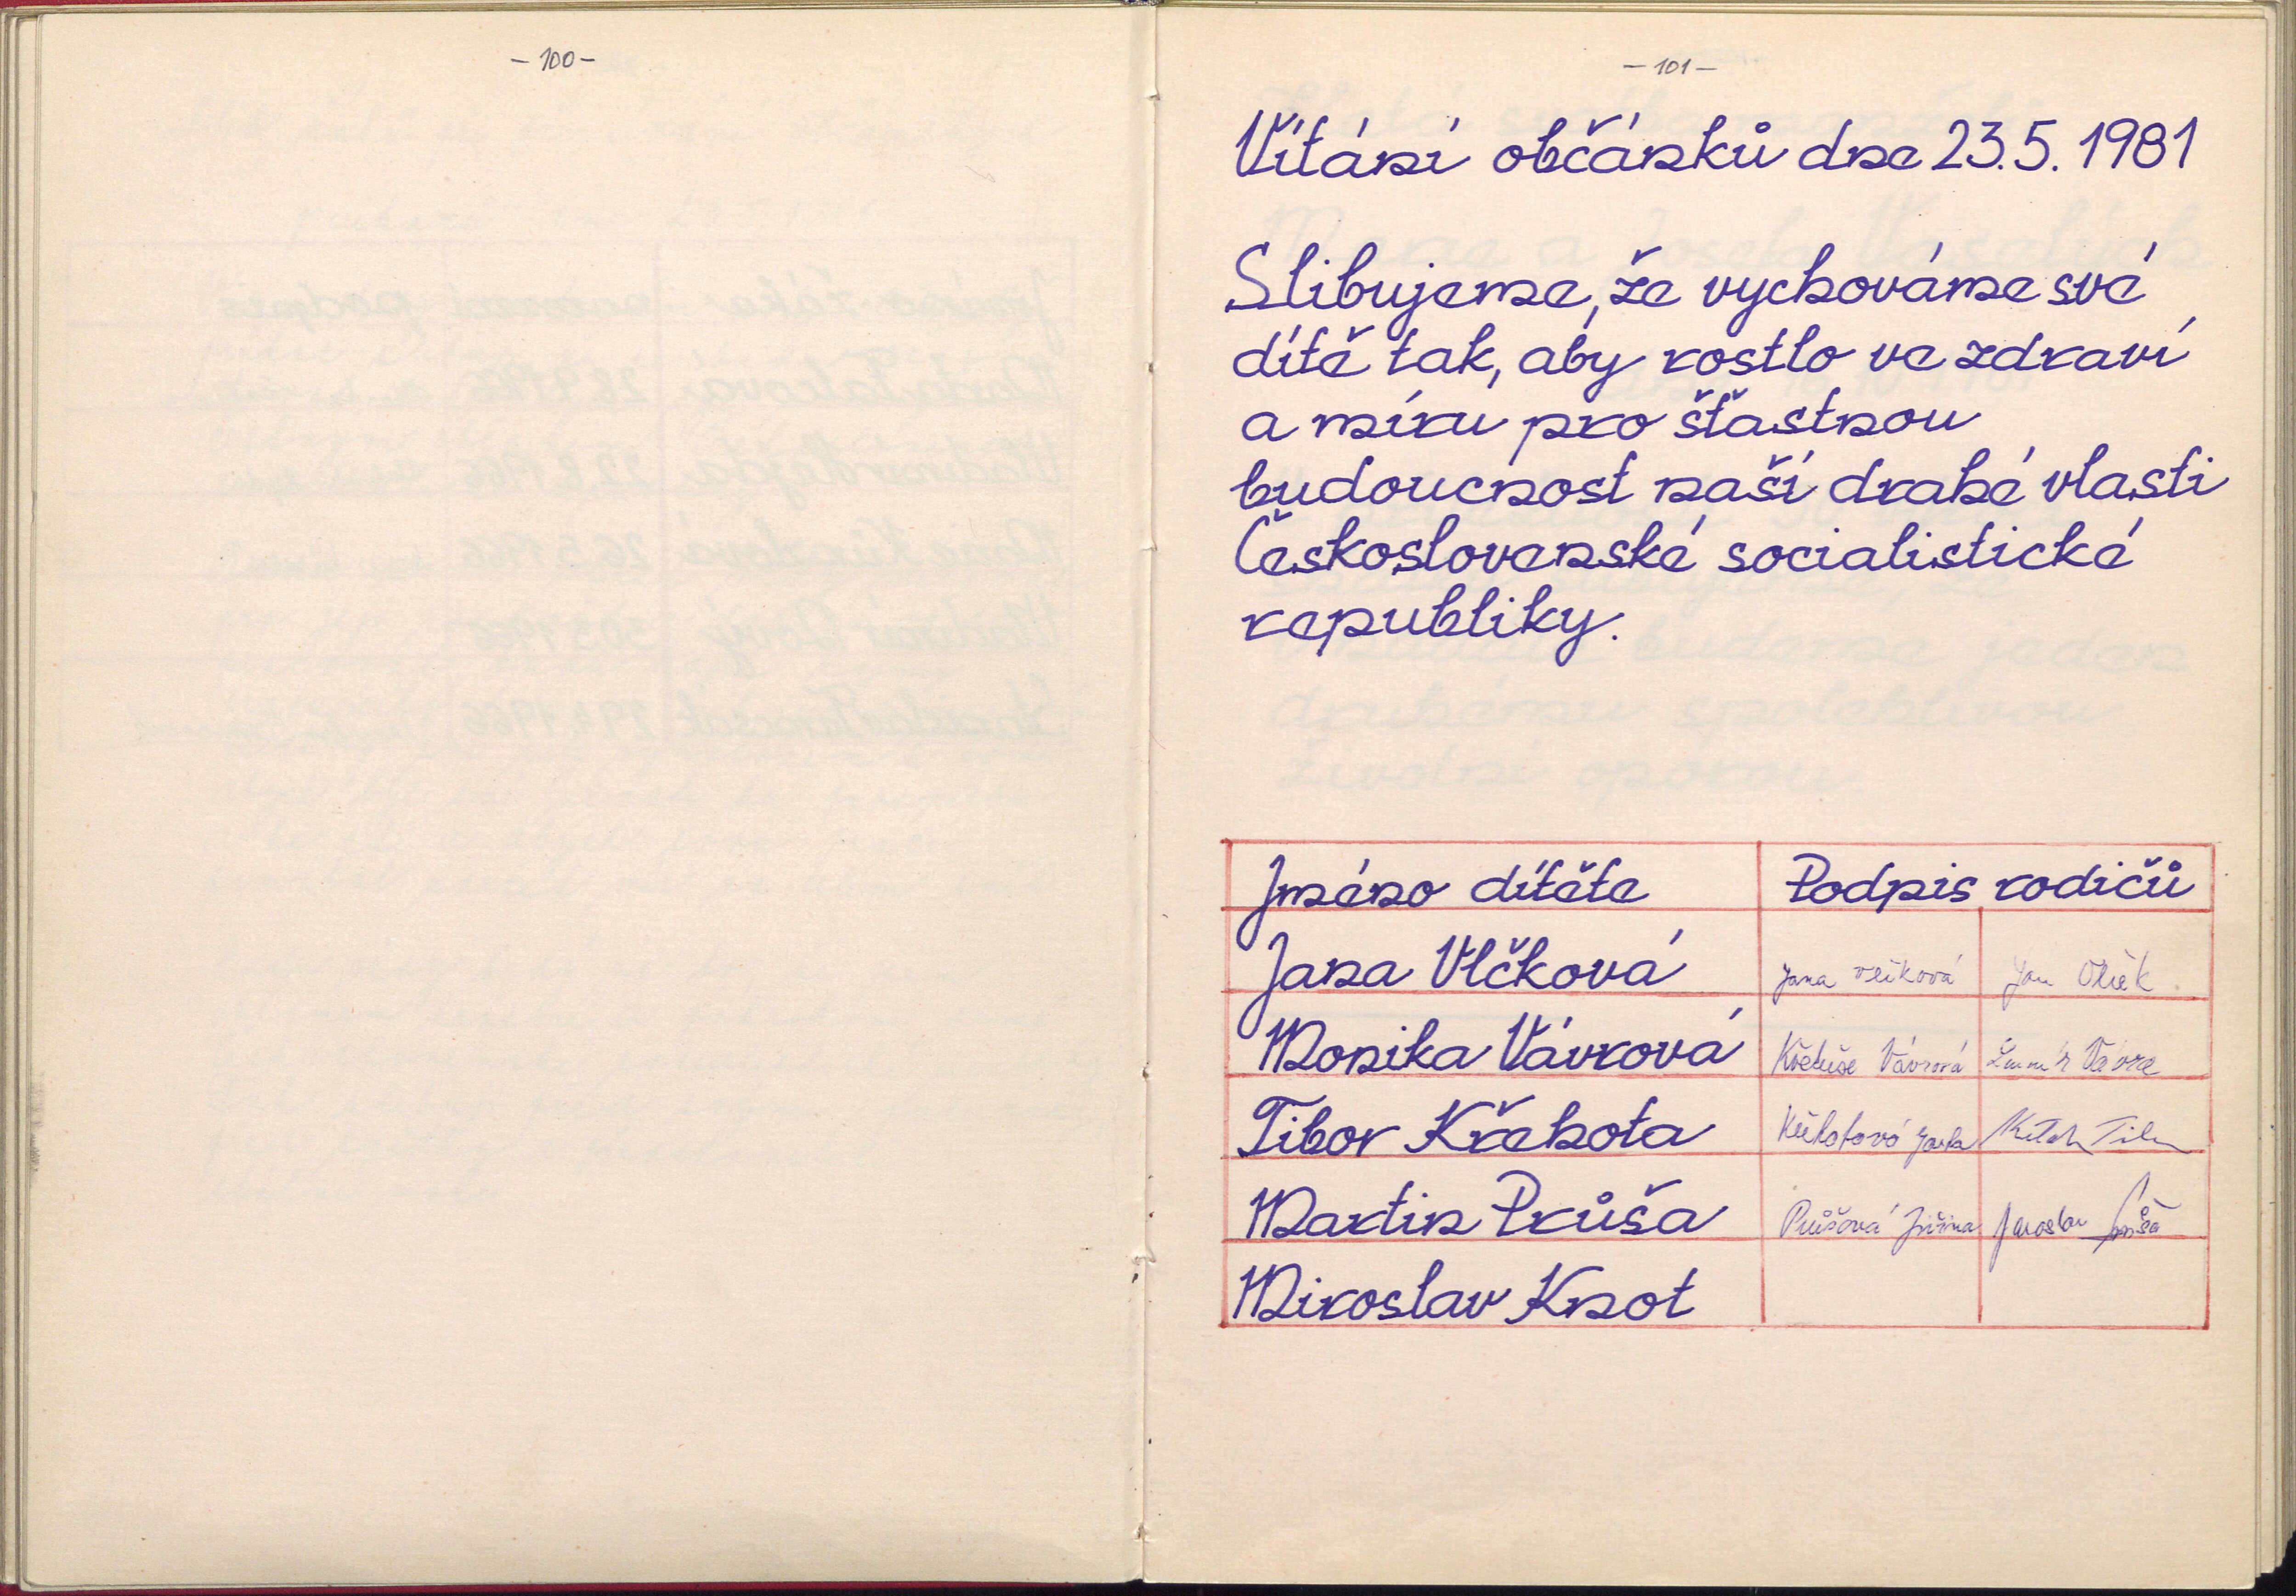 - 100 -
- 101 -
Vítání občánků dne 23.5. 1981
Slibujeme, že vychováme své
dítě tak, aby rostlo ve zdraví
a míru pro šťastnou
budoucnost naší drahé vlasti
Československé socialistické
republiky.
Jméno dítěte Podpis rodičů
Jana Vlčková Jana Vlčková Jan Vlček
Monika Vávrová Květuše Vávrová Vávra
Tibor Křehota Křehotová
Martin Průša Průšová Jiřina Jaroslav Průša
Miroslav Knot